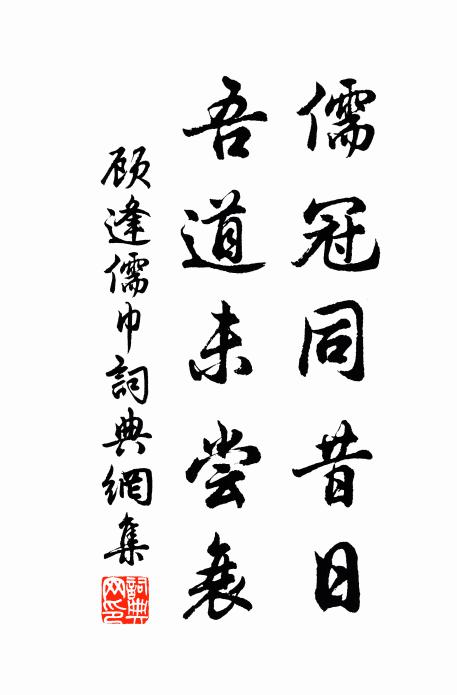 儒冠同昔日
吾道未尝衰
顾逢儒巾詞典網集
詞典網印